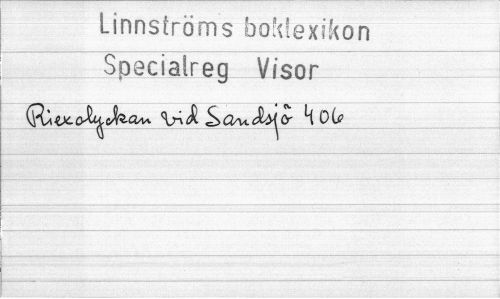 Linnströms boklexikon
Specialreg Visor
Riexolyckan vid Sandsjö 406